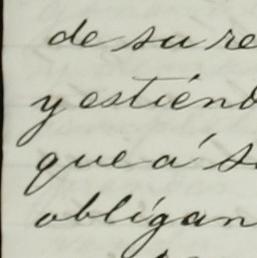 de su re
y estiénd
que á s
obligan